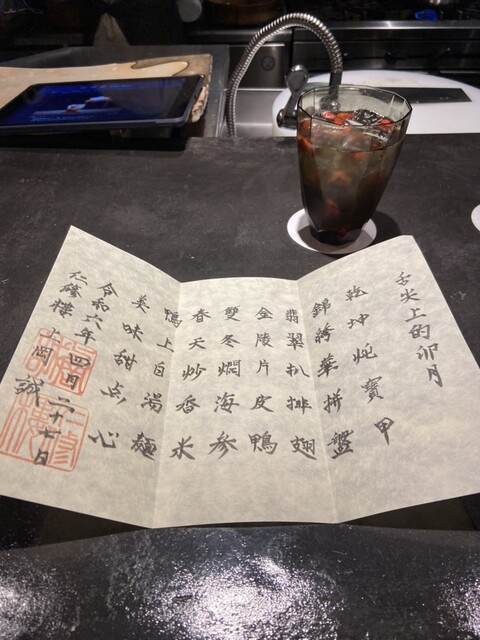 舌尖上的卯月
乾坤炖寶甲
錦綉華拼盤
翡翠扒排翅
金陵片皮鴨
雙冬燜海参
春天炒香米
鴨上白湯麵
美味甜点心
令和六年四月二十七日
仁修樓 上岡 誠